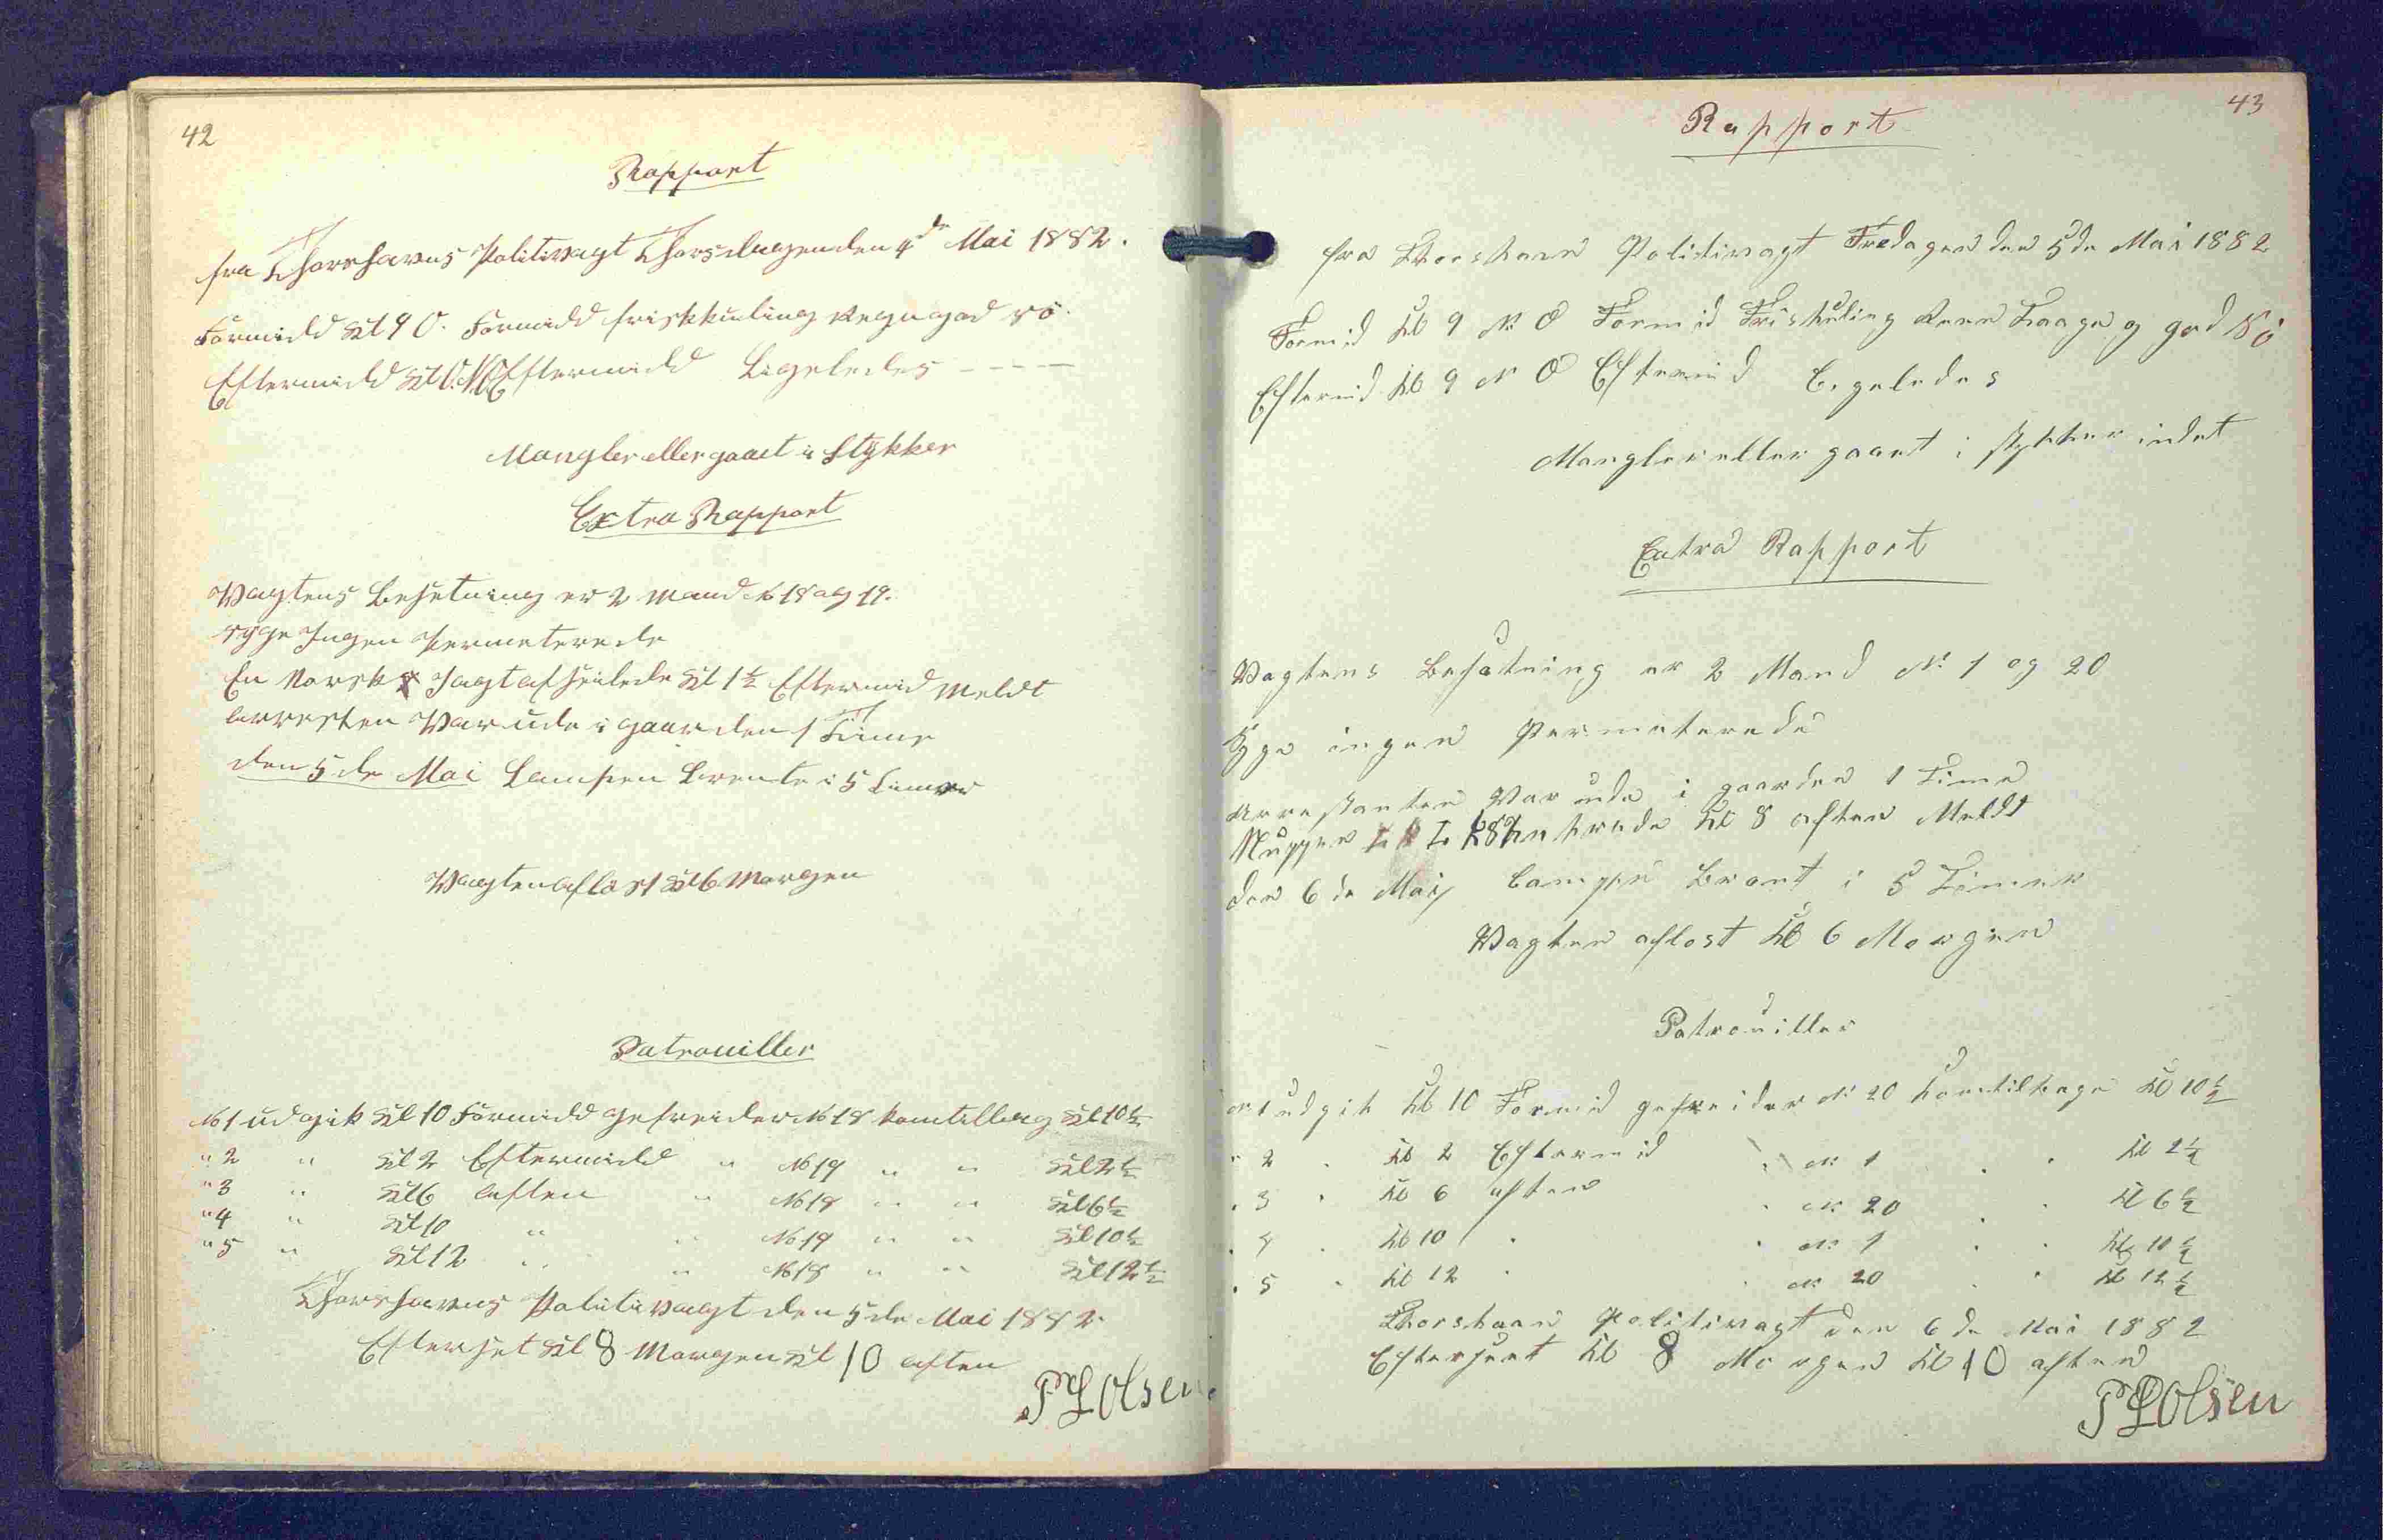 42
Rapport
fra Thorshavns Politivagt Thorsdagen den 4de Mai 1882.
Formidd Kl 9 O. Formidd friskkuling Regn god Rö.
Eftermidd Kl O.N.O Eftermidd Ligeledes - - - -
Mangler eller gaaet i Stykker
Extra Rapport
Vagtens Besetning er 2 Mand No 18 og 19.
Syge Ingen Permeterede
En Norsk Jagt afseilede Kl 1½ Eftermid Meldt
Arresten Var ude i gaarden 1 Time
den 5 de Mai Lampen Brente i 5 Timer
Vagten aflöst Kl 6 Morgen
Patrouiller
No 1 udgik Kl 10 Formidd gefreider No 18 kom tilbag Kl 10½
" 2 " Kl 2 Eftermidd " No 19 " " Kl 2½
" 3 " Kl 6 Aften " No 18 " " Kl 6½
" 4 " Kl 10 " " No 19 " " Kl 10½
" 5 " Kl 12 " " No 18 " " Kl 12½
Thorshavns Politivagt den 5 de Mai 1882.
Efterset Kl 8 Morgen Kl 10 Aften
P L Olsen
43
Rapport
fra Thorshavn Politivagt Fredagen den 5 de Mai 1882
Formid Kl 9 N. O Formid Friskuling Taage og god Rö
Eftermid Kl 9 N O Eftermid Ligeledes
Mangler eller gaaet i stykker indet
Extra Rapport
Vagtens Besatning er 2 Mand No 1 og 20
Syge ingen Permeterede
Arrestanten Var ude i gaarden 1 Time
Kl 8 aften Meldt
den 6 de Maij Lampen Brant i 5 Timer
Vagten aflost Kl 6 Morgen
Patrouiller
No 1 udgik Kl 10 Formid gefreider No 20 kom tilbage Kl 10½
" 2 " Kl 2 Eftermid " No 1 " " Kl 2½
" 3 " Kl 6 aften " No 20 " " Kl 6½
" 4 " Kl 10 " " No 1 " " Kl 10½
" 5 " Kl 12 " " No 20 " " Kl 12½
Thorshavn Politivagt den 6 de Mai 1882
Efterseet Kl 8 Morgen Kl 10 aften
P L Olsen